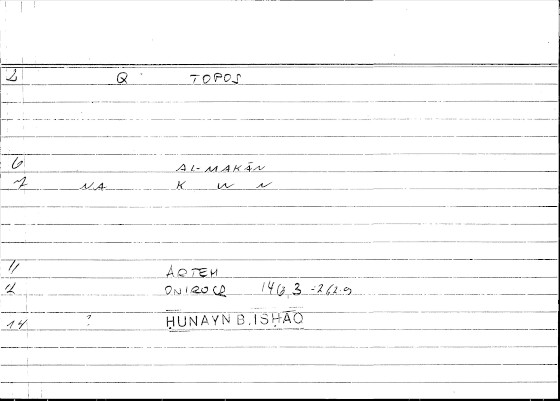 2 Q TOPOS
6 AL-MAKĀN
7 NA K W N
11 ARTEM
12 ONIROCR 146,3 -262.9
14 ? ḤUNAYN B.ISḤĀQ